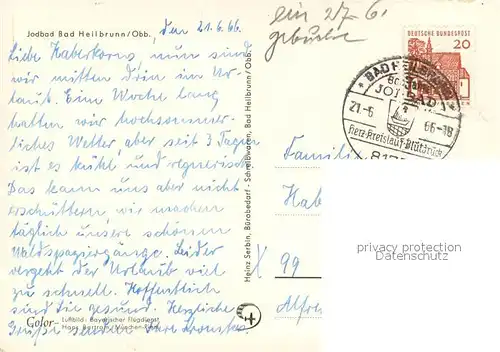 Jodbad Bad Heilbrunn/Obb.
den 21.6.66
Liebe Haberkorns, nun sind
wir mitten drin im Ur-
laub. Eine Woche lang
hatten wir hochsommer-
liches Wetter, aber seit 3 Tagen
ist es kühl und regnerisch
Das kann uns aber nicht
erschüttern, wir machen
täglich unsere schönen
Waldspaziergänge. Leider
vergeht der Urlaub viel
zu schnell. Hoffentlich
sind Sie gesund. Herzliche
Grüße senden Ihre
Color-
Luftbild - Bayerischer Flugdienst
Hans Bertram, München-Riem
Heinz Serbin, Bürobedarf - Schreibwaren, Bad Heilbrunn / Obb.
ein 27.6.
DEUTSCHE BUNDESPOST
20
BAD HEILBRUNN
JODBAD
21.-6 66-18
Herz-Kreislauf-Blutdruck
Famili
Hab
99
Alfre
privacy protection
Datenschutz